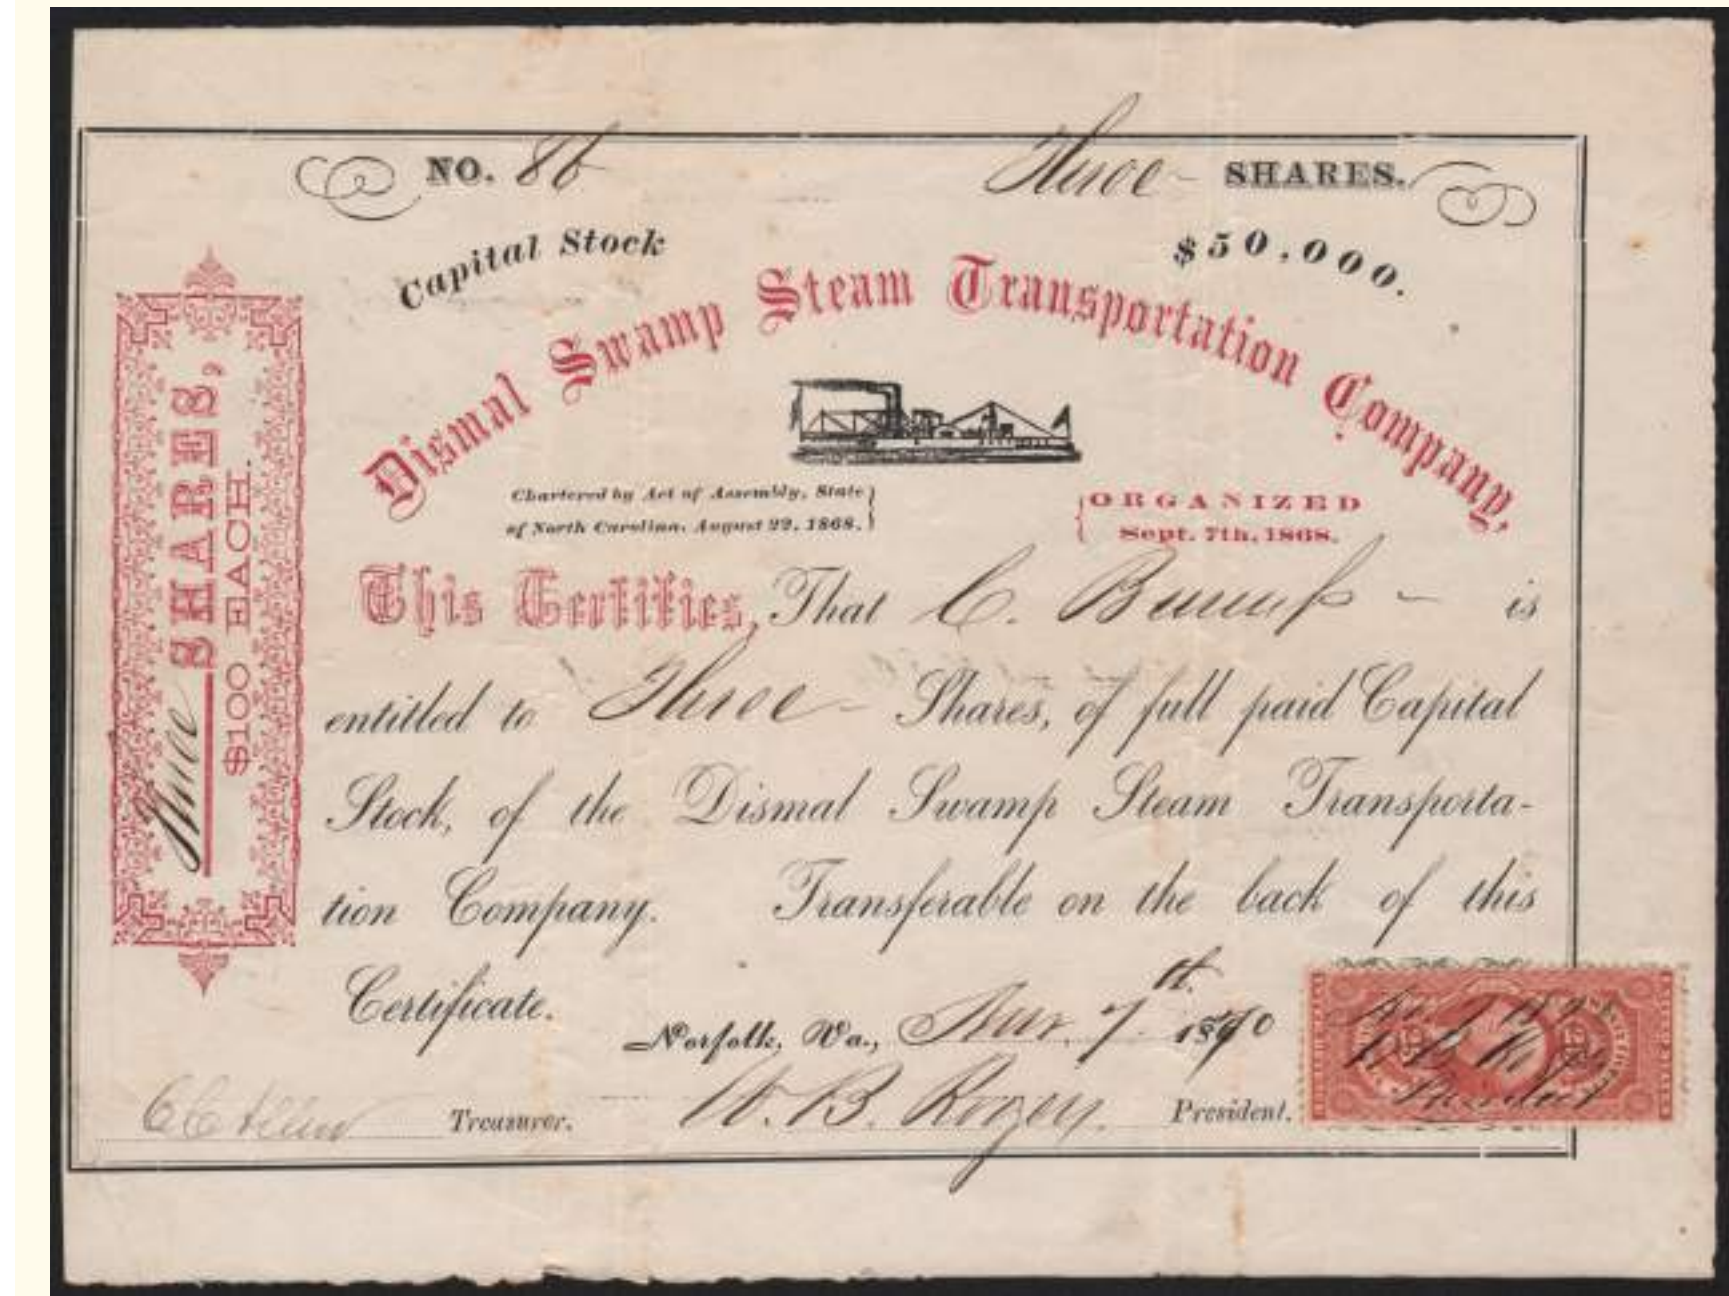 NO. 86
Three SHARES.
Capital Stock $50,000.
Dismal Swamp Steam Transportation Company,
Chartered by Act of Assembly, State
of North Carolina, August 22, 1868.
ORGANIZED
Sept. 7th, 1868.
Three SHARES,
$100 EACH.
This Certifies, That C. is
entitled to Three Shares, of full paid Capital
Stock, of the Dismal Swamp Steam Transporta-
tion Company. Transferable on the back of this
Certificate.
Norfolk, Va., 7th 1870
Treasurer.
W. B. Rogers President.